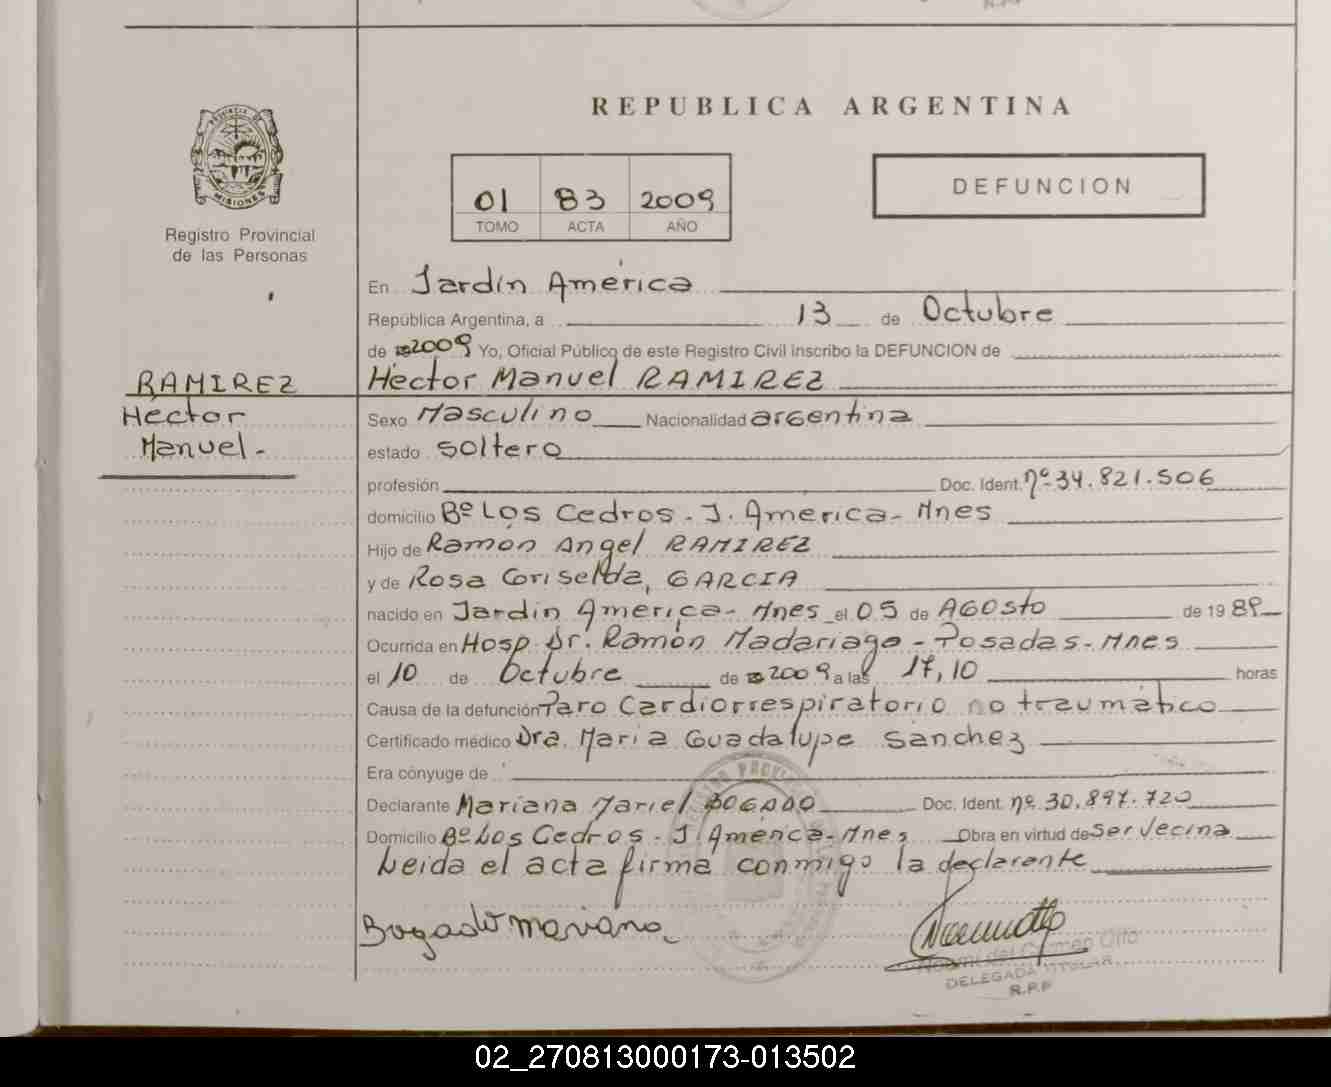 REPUBLICA ARGENTINA
PROVINCIA DE
MISIONES
Registro Provincial
de las Personas
01 83 2009
TOMO ACTA AÑO
DEFUNCION
En Jardín América
República Argentina, a 13 de Octubre
de 2009 Yo, Oficial Público de este Registro Civil inscribo la DEFUNCION de
RAMIREZ
Héctor
Manuel.-
Héctor Manuel RAMIREZ
Sexo Masculino Nacionalidad argentina
estado soltero
profesión Doc. Ident. nº 34.821.506
domicilio Bº Los Cedros - J. America - Mnes
Hijo de Ramon Angel RAMIREZ
y de Rosa Griselda, GARCIA
nacido en Jardín America - Mnes el 05 de AGOSTO de 19 89
Ocurrida en Hosp. Dr. Ramón Madariaga - Posadas - Mnes
el 10 de Octubre de 2009 a las 17,10 horas
Causa de la defunción Paro Cardiorrespiratorio no traumático
Certificado médico Dra. María Guadalupe Sanchez
Era cónyuge de
Declarante Mariana Mariel BOGADO Doc. Ident. nº 30.897.720
Domicilio Bº Los Cedros - J. América - Mnes Obra en virtud de Ser Vecina
Leida el acta firma conmigo la declarante
Bogado Mariana
Noemi del Carmen Otto
DELEGADA TITULAR
R.P.P
02_270813000173-013502